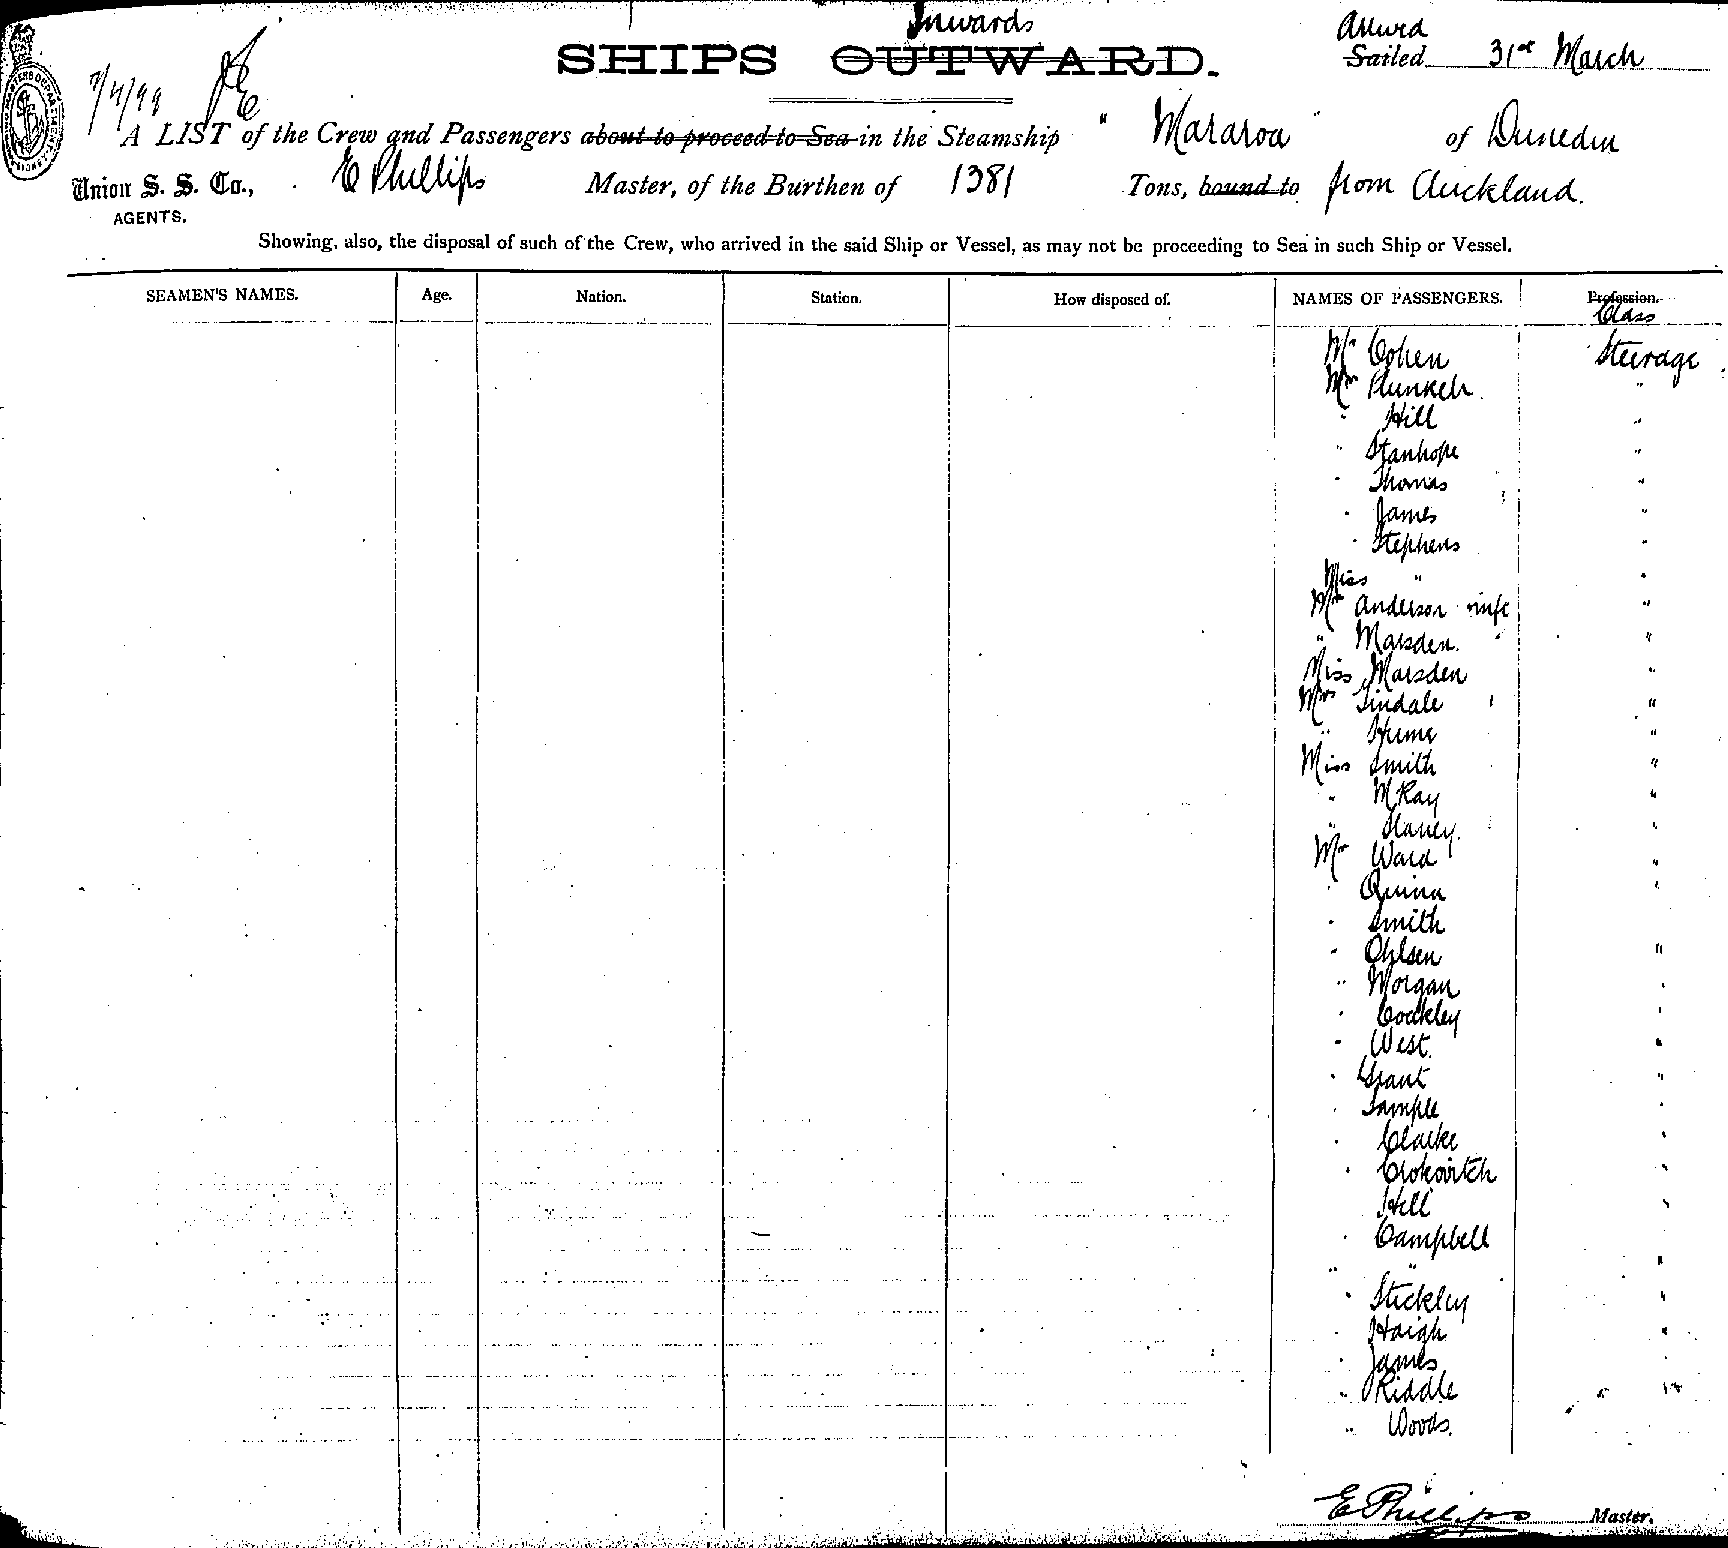 Inwards
SHIPS OUTWARD.
Arrived
Sailed 31st March
7/4/99
A LIST of the Crew and Passengers about to proceed to Sea in the Steamship " Mararoa " of Dunedin
Union S. S. Co., E Phillips Master, of the Burthen of 1381 Tons, bound to from Auckland.
AGENTS.
Showing, also, the disposal of such of the Crew, who arrived in the said Ship or Vessel, as may not be proceeding to Sea in such Ship or Vessel.
SEAMEN'S NAMES. Age. Nation. Station. How disposed of. NAMES OF PASSENGERS. Profession.
Class
Mr Cohen Steerage
Mr Plunkett "
" Hill "
" Stanhope "
" Thomas "
" James "
" Stephens "
Miss " "
Mrs Anderson "
" Marsden "
Miss Marsden "
Mrs Tindale "
" Hume "
Miss Smith "
" McRay "
" "
Mr Ward "
" Quinn "
" Smith "
" Ohlsen "
" Morgan "
" Coakley "
" West "
" Grant "
" Sample "
" Clarke "
" Crokovitch "
" Hill "
" Campbell "
" " "
" Stickley "
" Haigh "
" James "
" Riddle "
" Woods.
E Phillips Master.